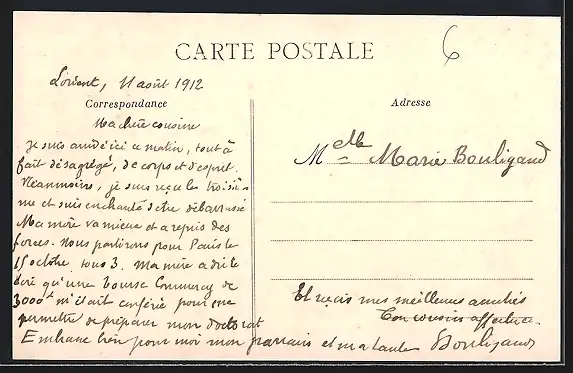 CARTE POSTALE
6
Lorient, 11 août 1912
Correspondance
Adresse
Ma chère cousine
Je suis arrivé ici ce matin, tout à
fait désagrégé, de corps et d'esprit.
Néanmoins, je suis reçu le troisiè
me et suis enchanté d'être débarrassé
Ma mère va mieux et a repris des
forces. Nous partirons pour Paris le
15 octobre tous 3. Ma mère a dû te
dire qu'une bourse Commercy de
3000f m'était conférée pour me
permettre de préparer mon doctorat
Embrasse bien pour moi mon parrain et ma tante
Melle Marie Bouligand
Et reçois mes meilleures amitiés
Ton cousin affectueux
Bouligand